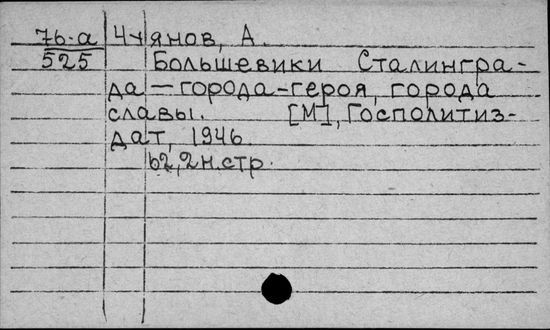 76-а Чуянов, А.
525 Большевики Сталингра-
да — города-героя, города
славы. [М], Госполитиз-
дат, 1946.
62, 2 н. стр.